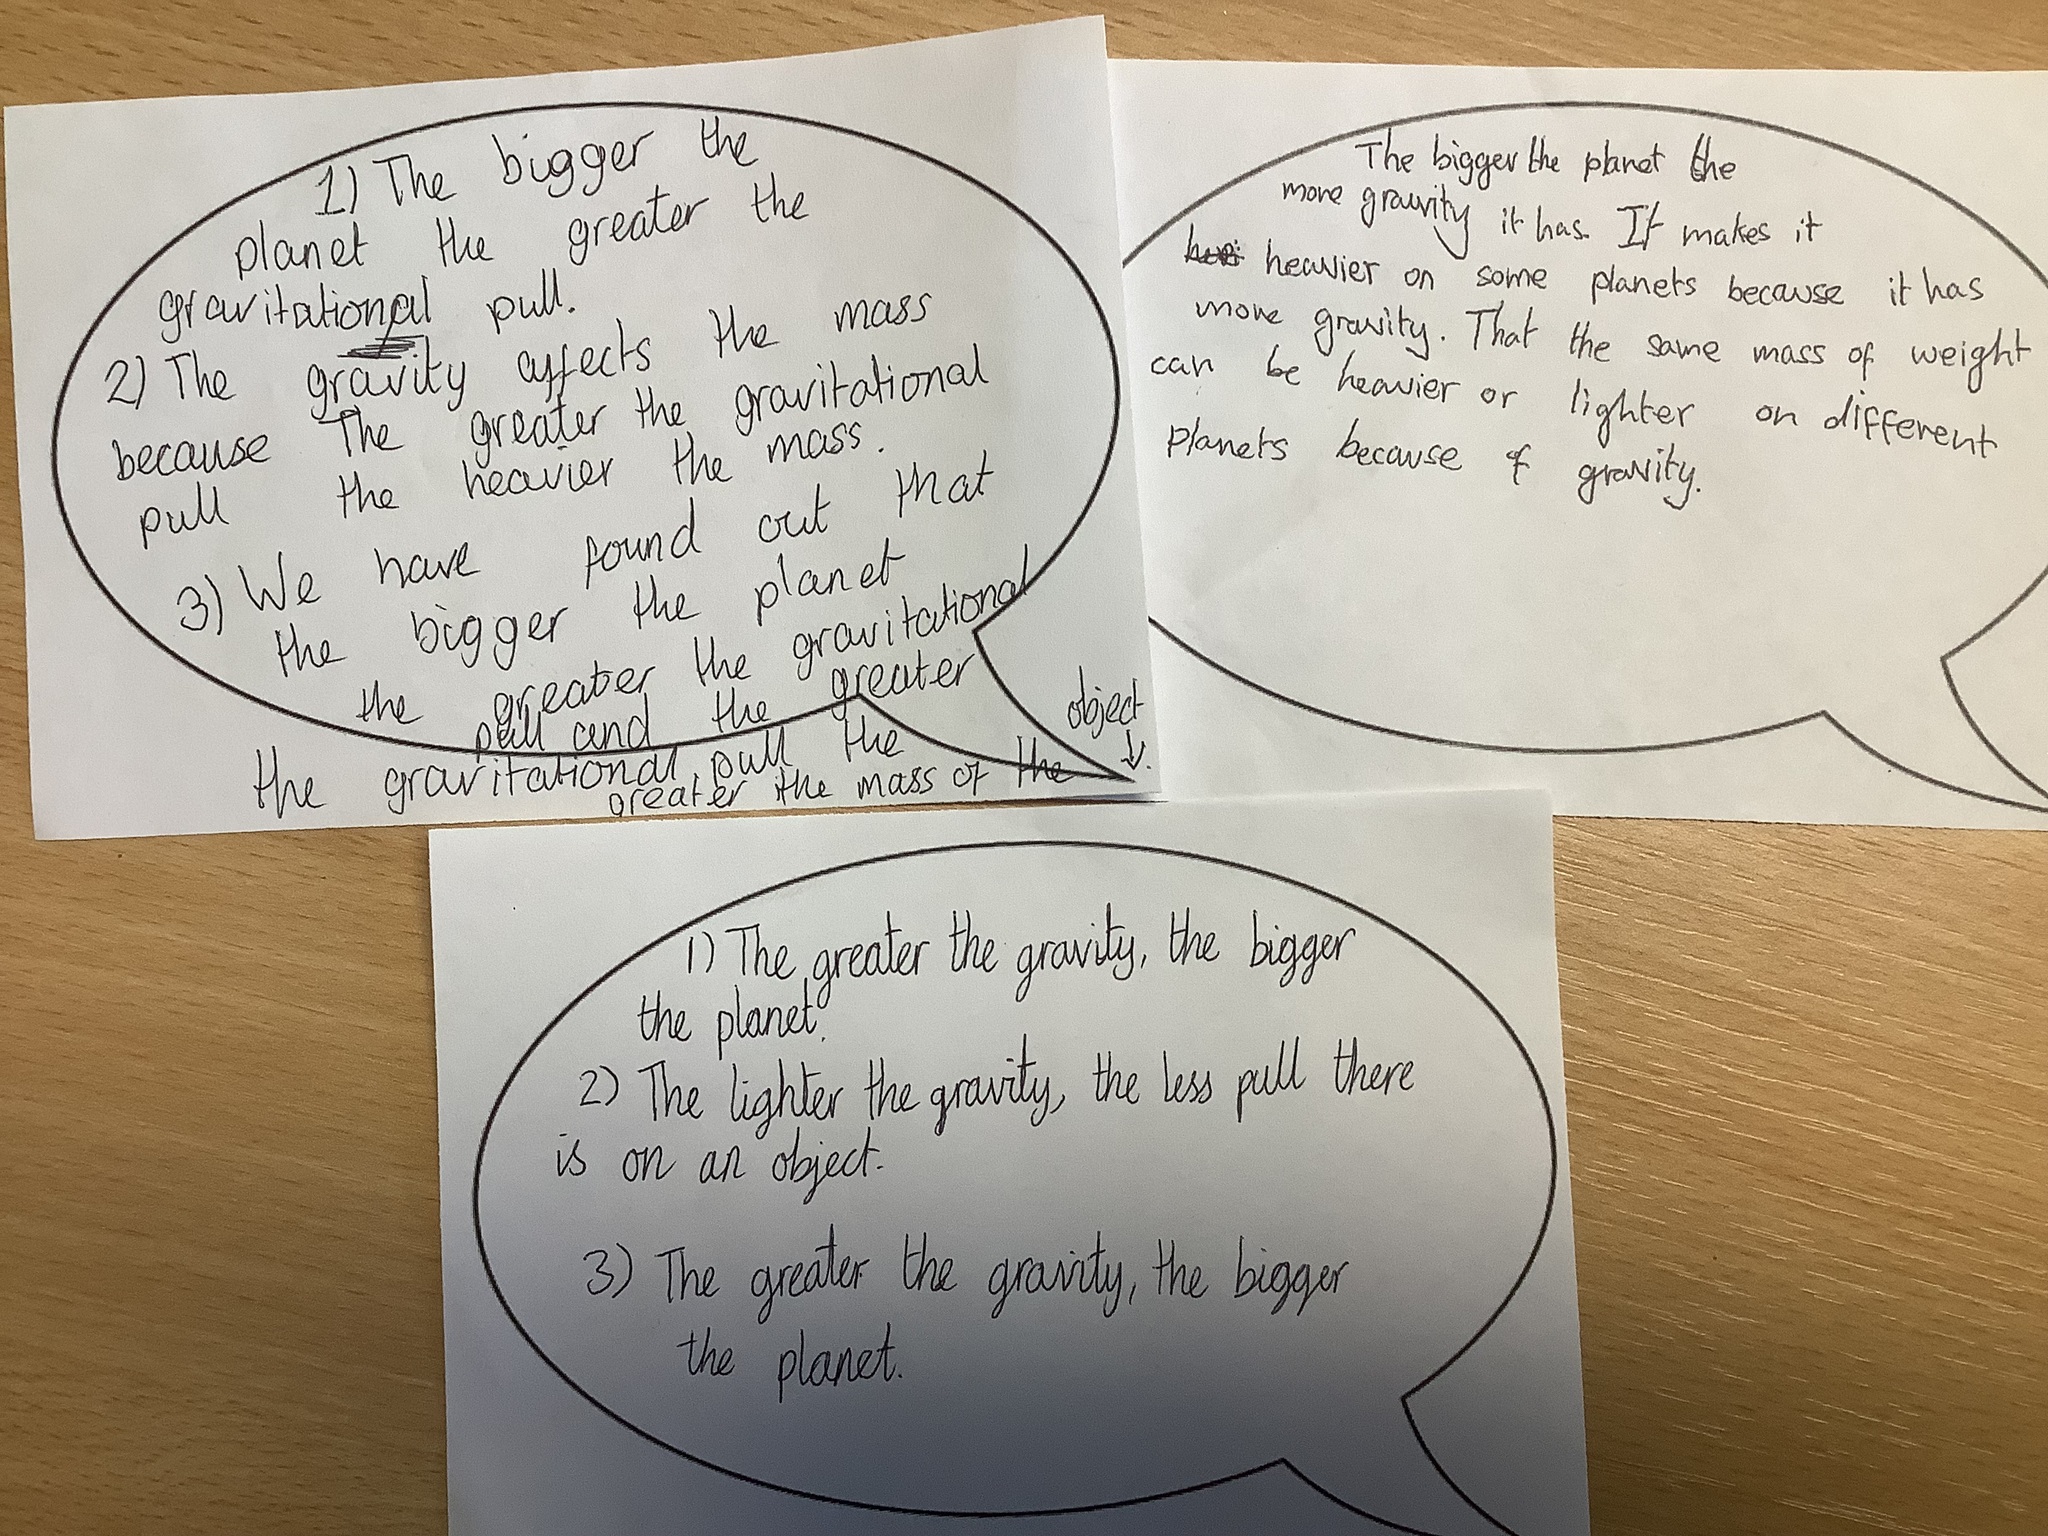 1) The bigger the
planet the greater the
gravitational pull.
2) The gravity affects the mass
because The greater the gravitational
pull the heavier the mass.
3) We have found out that
the bigger the planet
the greater the gravitational
pull and the greater
the gravitational pull the
greater the mass of the
object
The bigger the planet the
more gravity it has. It makes it
heavier on some planets because it has
more gravity. That the same mass of weight
can be heavier or lighter on different
planets because of gravity.
1) The greater the gravity, the bigger
the planet.
2) The lighter the gravity, the less pull there
is on an object.
3) The greater the gravity, the bigger
the planet.